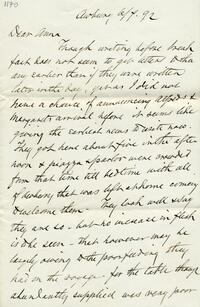 1180
Awhung 6/7. 92
Dear Anna
Though writing before break
fast does not seem to get letters to thee
any earlier than if they were written
later in the day, yet as I did not
have a chance of announcing Alfred &
Margaret's arrival before it seems like
giving the earliest news to write now.
They got here about five in the after
noon & piazza & parlor were crowded
from that time till bedtime with all
of Awhung that was left at home coming
to welcome them. They look well & say
they are so - but no increase in flesh
is to be seen - that however may be
largely owing to the poor feeding they
had on the voyage for the table though
abundantly supplied was very poor